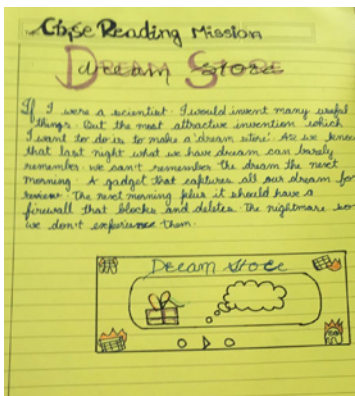 Cbse Reading Mission
Dream Store
dream store
If I were a scientist. I would invent many useful
things. But the most attractive invention which
I want to do is to make a 'dream store'. As we know
that last night what we have dream can barely
remember. we can't remember the dream the next
morning. A gadget that captures all our dream for
review. The next morning plus it should have a
firewall that blocks and deletes. The nightmare so
we don't experience them.
Dream Store